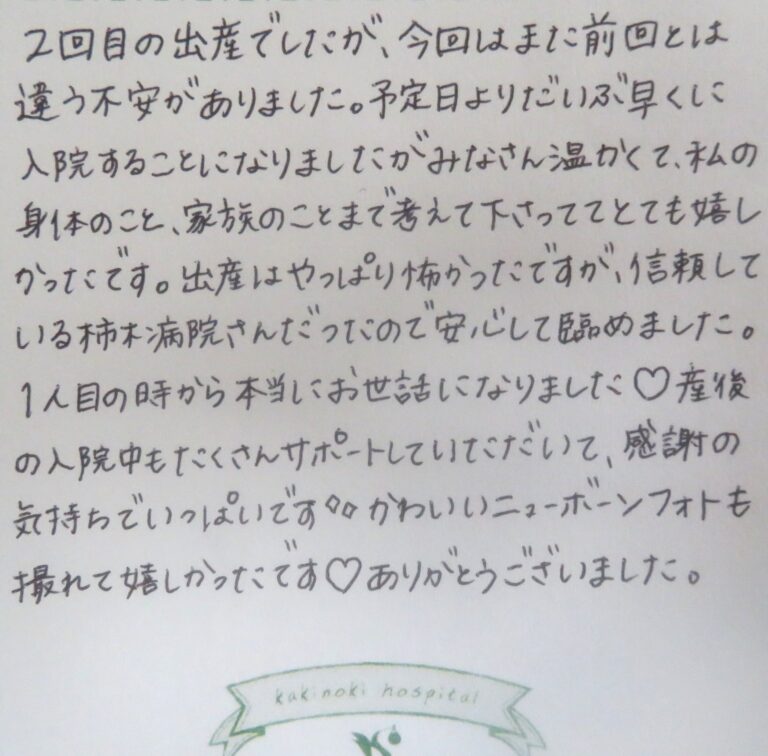 2回目の出産でしたが、今回はまた前回とは
違う不安がありました。予定日よりだいぶ早くに
入院することになりましたがみなさん温かくて、私の
身体のこと、家族のことまで考えて下さっててとても嬉し
かったです。出産はやっぱり怖かったですが、信頼して
いる柿木病院さんだったので安心して臨めました。
1人目の時から本当にお世話になりました♡産後
の入院中もたくさんサポートしていただいて、感謝の
気持ちでいっぱいです◊◊かわいいニューボーンフォトも
撮れて嬉しかったです♡ありがとうございました。
kakinoki hospital
K